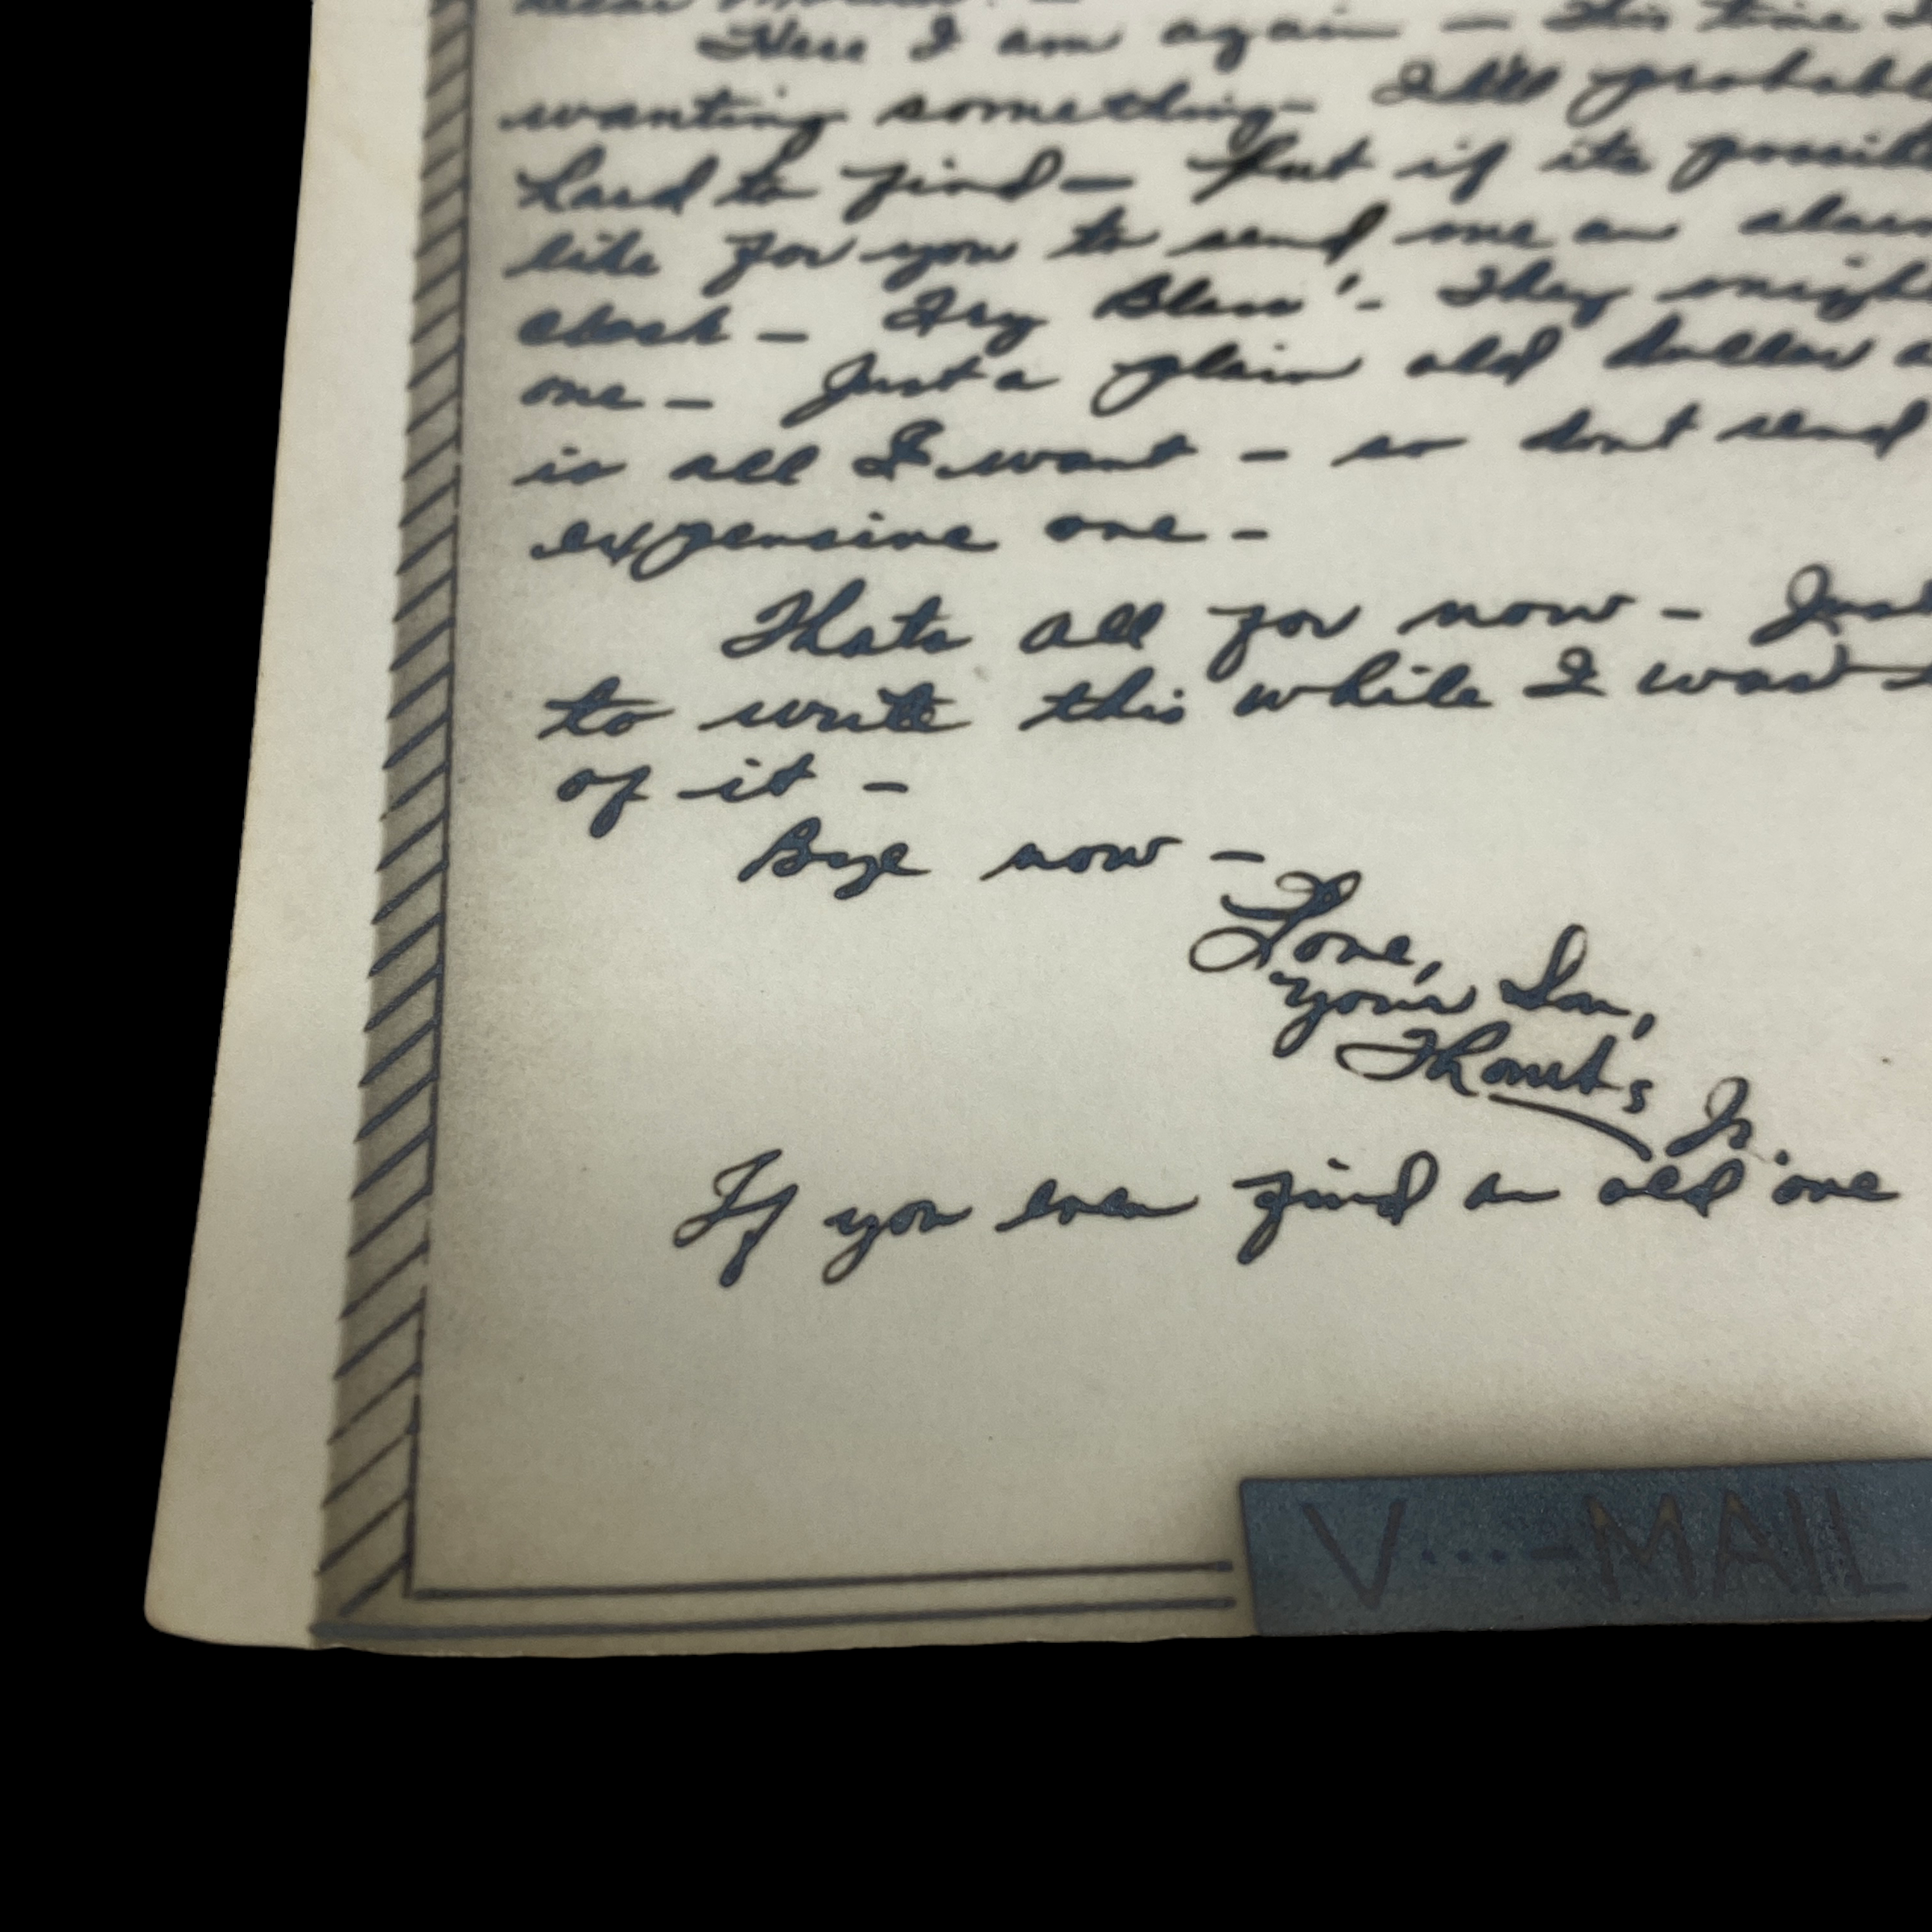 Here I am again — This time I
wanting something — I'll probabl
hard to find — but if its possib
like for you to send me an alar
clock — Try Blass' - They migh
one — Just a plain old dollar a
is all I want — so dont send
expensive one -
Thats all for now - Just
to write this while I was
of it -
Bye now -
Love,
your Son,
Jr.
If you even find an old one
V···—MAIL